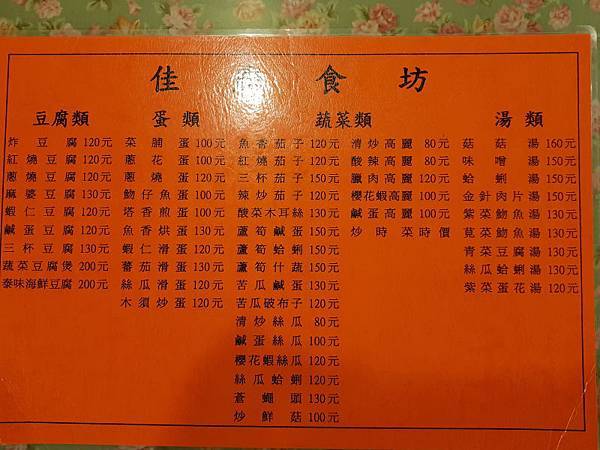 佳 食坊
豆腐類
炸豆腐 120元
紅燒豆腐 120元
蔥燒豆腐 120元
麻婆豆腐 130元
蝦仁豆腐 120元
鹹蛋豆腐 120元
三杯豆腐 130元
蔬菜豆腐煲 200元
泰味海鮮豆腐 200元
蛋類
菜脯蛋 100元
蔥花蛋 100元
蔥燒蛋 120元
魩仔魚蛋 100元
塔香煎蛋 100元
魚香烘蛋 130元
蝦仁滑蛋 120元
蕃茄滑蛋 130元
絲瓜滑蛋 120元
木須炒蛋 120元
蔬菜類
魚香茄子 120元
紅燒茄子 120元
三杯茄子 150元
辣炒茄子 120元
酸菜木耳絲 130元
蘆筍鹹蛋 150元
蘆筍蛤蜊 150元
蘆筍什蔬 150元
苦瓜鹹蛋 130元
苦瓜破布子 120元
清炒絲瓜 80元
鹹蛋絲瓜 100元
櫻花蝦絲瓜 120元
絲瓜蛤蜊 120元
蒼蠅頭 130元
炒鮮菇 100元
清炒高麗 80元
酸辣高麗 80元
臘肉高麗 120元
櫻花蝦高麗 100元
鹹蛋高麗 100元
炒時菜 時價
湯類
菇菇湯 160元
味噌湯 150元
蛤蜊湯 150元
金針肉片湯 150元
紫菜魩魚湯 130元
莧菜魩魚湯 130元
青菜豆腐湯 130元
絲瓜蛤蜊湯 130元
紫菜蛋花湯 120元